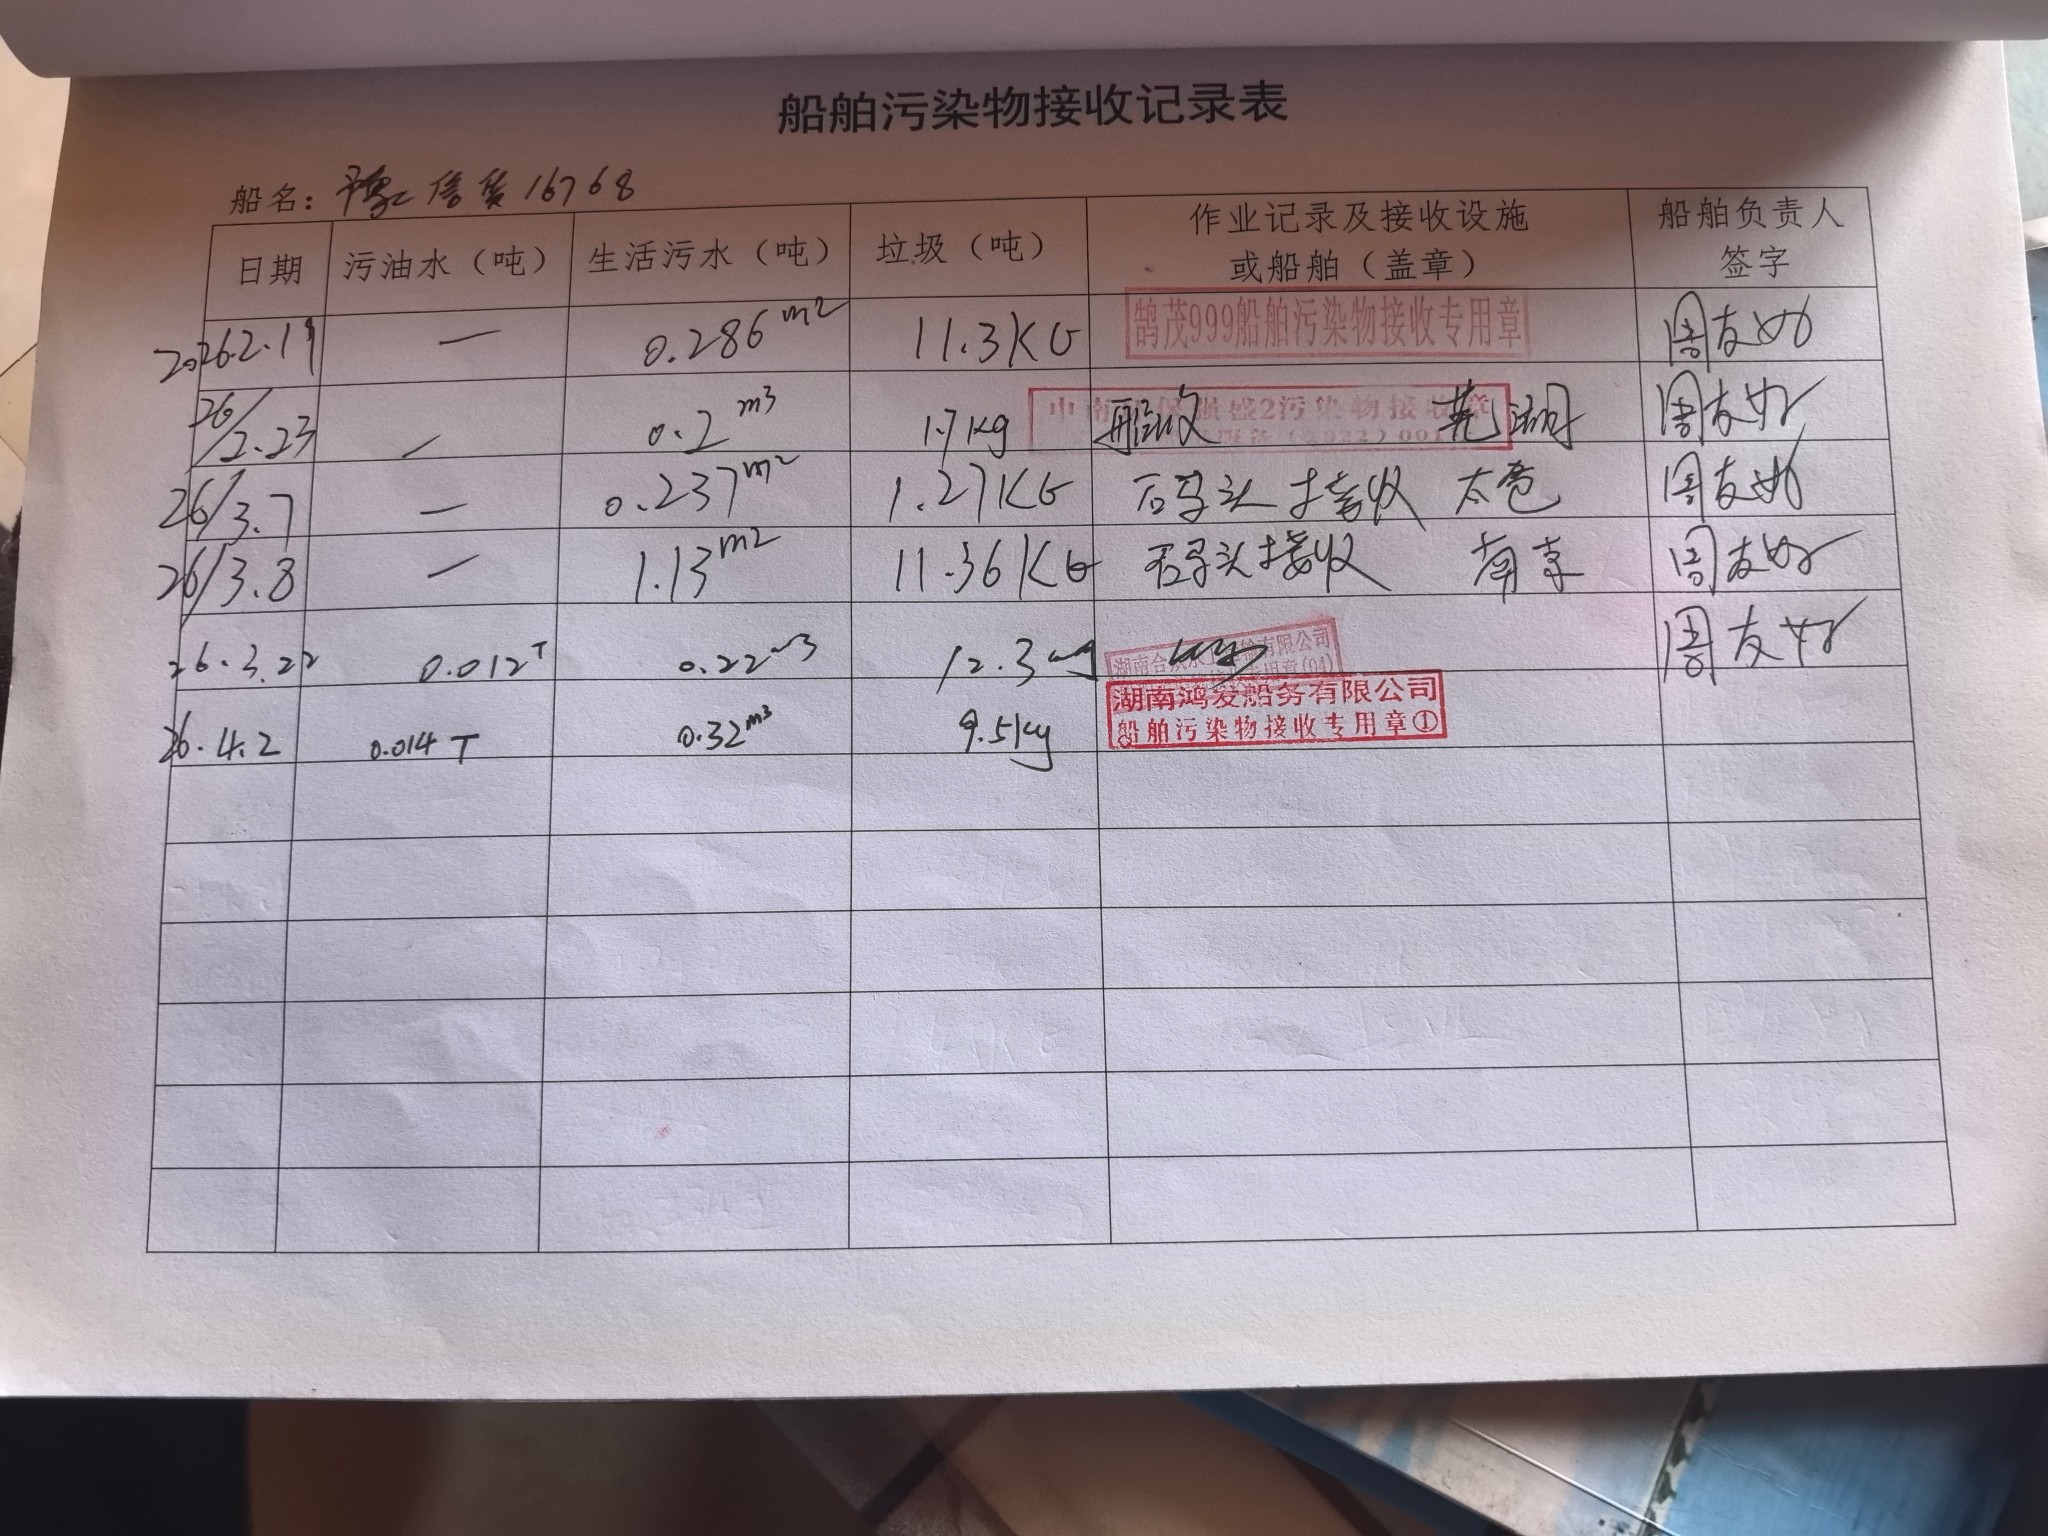 船舶污染物接收记录表
船名: 豫信货16768
日期 污油水（吨） 生活污水（吨） 垃圾（吨） 作业记录及接收设施或船舶（盖章） 船舶负责人签字
2026.2.19 — 0.286m2 11.3KG 鹄茂999船舶污染物接收专用章 周友好
26/2.23 — 0.2m3 1.7kg 船收 芜湖 周友好
强盛2污染物接收章
(2022)001
26/3.7 — 0.237m2 1.27KG 码头接收 太仓 周友好
26/3.8 — 1.13m2 11.36KG 码头接收 南京 周友好
26.3.22 0.012T 0.22m3 12.3 周友好
26.4.2 0.014T 0.32m3 9.5kg 湖南鸿发船务有限公司
船舶污染物接收专用章①